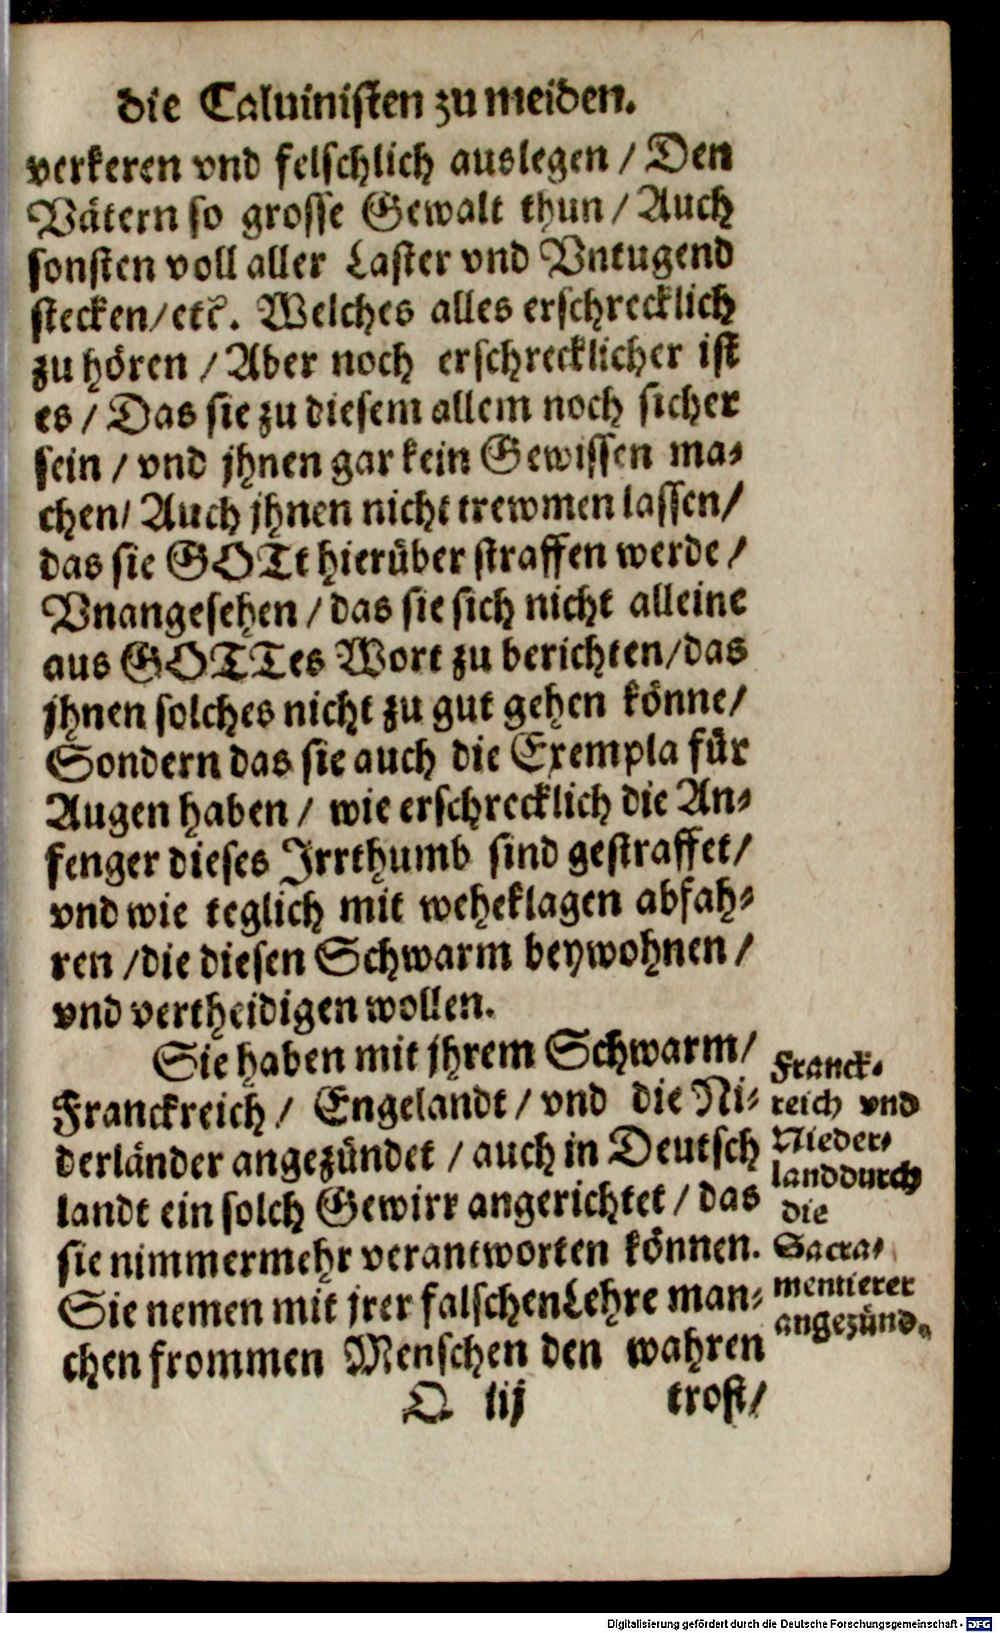 die Caluinisten zu meiden.
verkeren vnd felschlich auslegen / Den
Vätern so grosse Gewalt thun / Auch
sonsten voll aller Laster vnd Vntugend
stecken/etc. Welches alles erschrecklich
zu hören / Aber noch erschrecklicher ist
es / Das sie zu diesem allem noch sicher
sein / vnd jhnen gar kein Gewissen ma-
chen/ Auch jhnen nicht trewmen lassen/
das sie GOTt hierüber straffen werde /
Vnangesehen / das sie sich nicht alleine
aus GOTTes Wort zu berichten/das
jhnen solches nicht zu gut gehen könne/
Sondern das sie auch die Exempla für
Augen haben / wie erschrecklich die An-
fenger dieses Irrthumb sind gestraffet/
vnd wie teglich mit weheklagen abfah-
ren /die diesen Schwarm beywohnen /
vnd vertheidigen wollen.
Sie haben mit jhrem Schwarm/
Franckreich / Engelandt / vnd die Ni-
derländer angezündet / auch in Deutsch
landt ein solch Gewirr angerichtet / das
sie nimmermehr verantworten können.
Sie nemen mit jrer falschen Lehre man-
chen frommen Menschen den wahren
O iij trost/
Franck-
reich vnd
Nieder-
land durch
die
Sacra-
mentierer
angezünd.
Digitalisierung gefördert durch die Deutsche Forschungsgemeinschaft - DFG